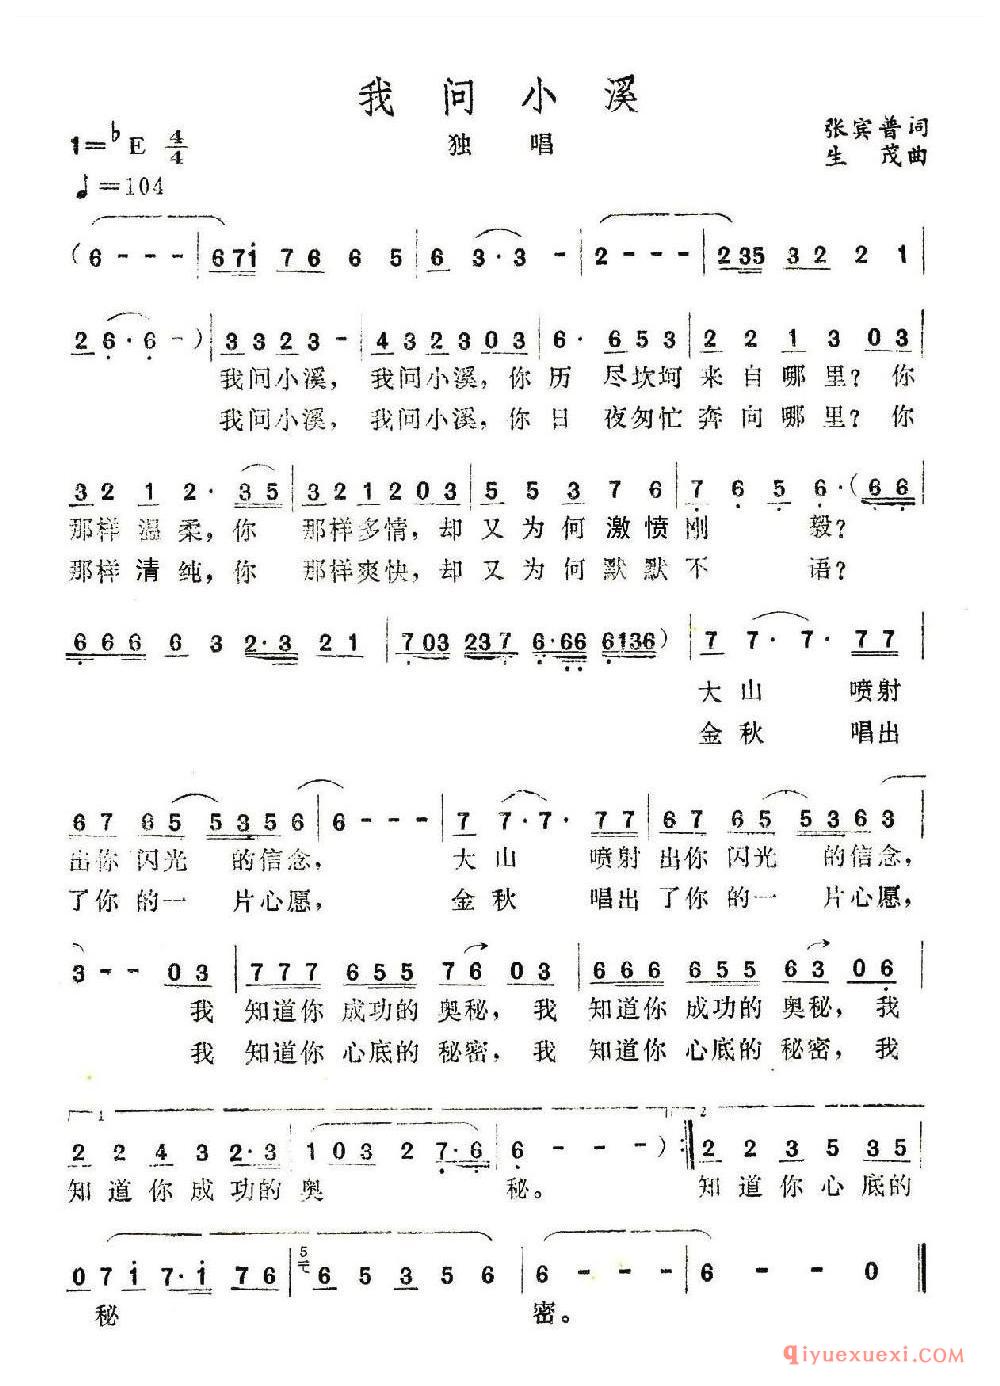 我问小溪
1=♭E 4/4
独 唱
张宾普词
生 茂曲
♩=104
(6 - - - | 67i 76 6 5 | 6 3·3 - | 2 - - - | 235 32 2 1 |
2 6·6 -) | 3323 - | 432303 | 6· 653 | 2 2 1 3 03 |
我问小溪，我问小溪，你历 尽坎坷来自哪里？你
我问小溪，我问小溪，你日 夜匆忙奔向哪里？你
32 1 2· 35 | 321203 | 5 5 3 7 6 | 7 6 5 6·(66 |
那样温柔，你 那样多情，却又为何激愤刚 毅？
那样清纯，你 那样爽快，却又为何默默不 语？
666 6 3 2·3 21 | 703 237 6·66 6136) | 7 7·7· 77 |
大山 喷射
金秋 唱出
67 65 5356 | 6 - - - | 7 7·7· 77 | 67 65 5363 |
出你闪光 的信念， 大山 喷射出你闪光 的信念，
了你的一 片心愿， 金秋 唱出了你的一 片心愿，
3 - - 03 | 777 655 76 03 | 666 655 63 06 |
我 知道你成功的奥秘，我 知道你成功的奥秘，我
我 知道你心底的秘密，我 知道你心底的秘密，我
1 2
2 2 4 3 2·3 | 103 2 7·6 | 6 - - -) :‖ 2 2 3 5 35 |
知道你成功的奥 秘。 知道你心底的
07i 7·i 76 | 5 6 5 3 5 6 | 6 - - - | 6 - - 0 ‖
秘 密。
qiyuexuexi.com